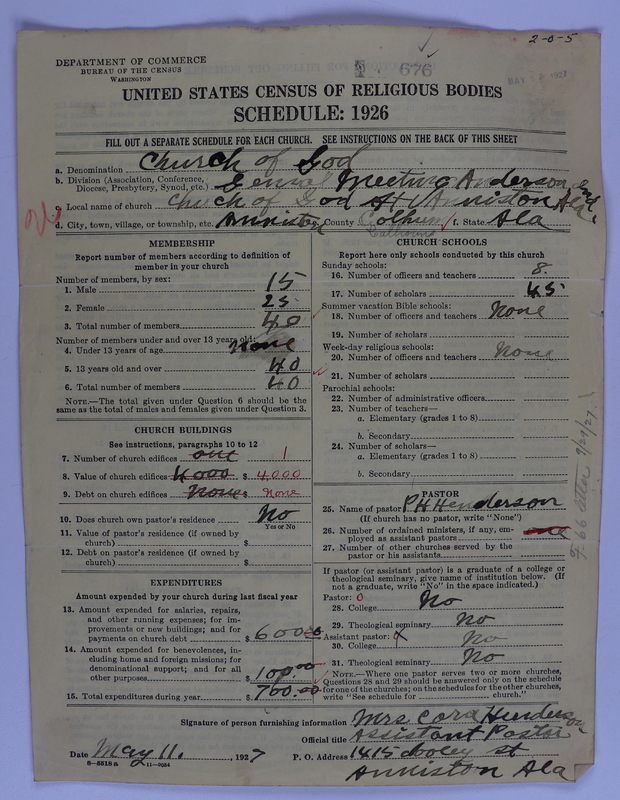 2-0-5
DEPARTMENT OF COMMERCE
BUREAU OF THE CENSUS
WASHINGTON
676
UNITED STATES CENSUS OF RELIGIOUS BODIES
SCHEDULE: 1926
FILL OUT A SEPARATE SCHEDULE FOR EACH CHURCH. SEE INSTRUCTIONS ON THE BACK OF THIS SHEET
a. Denomination Church of God
b. Division (Association, Conference, Diocese, Presbytery, Synod, etc.) General Meeting Anderson Ind.
c. Local name of church Church of God At Anniston Ala
d. City, town, village, or township, etc. Anniston County Colhun f. State Ala
Calhoun
MEMBERSHIP
Report number of members according to definition of
member in your church
Number of members, by sex:
1. Male 15
2. Female 25
3. Total number of members 40
Number of members under and over 13 years old:
4. Under 13 years of age none
5. 13 years old and over 40
6. Total number of members 40
NOTE.—The total given under Question 6 should be
same as the total of males and females given under Question 3.
CHURCH BUILDINGS
See instructions, paragraphs 10 to 12
7. Number of church edifices one 1
8. Value of church edifices 4000 $ 4,000
9. Debt on church edifices none $ none
10. Does church own pastor's residence No
Yes or No
11. Value of pastor's residence (if owned by
church) $
12. Debt on pastor's residence (if owned by
church) $
EXPENDITURES
Amount expended by your church during last fiscal year
13. Amount expended for salaries, repairs,
and other running expenses; for im-
provements or new buildings; and for
payments on church debt $ 600.00
14. Amount expended for benevolences, in-
cluding home and foreign missions; for
denominational support; and for all
other purposes $ 100.00
15. Total expenditures during year $ 700.00
CHURCH SCHOOLS
Report here only schools conducted by this church
Sunday schools:
16. Number of officers and teachers 8
17. Number of scholars 45
Summer vacation Bible schools:
18. Number of officers and teachers None
19. Number of scholars
Week-day religious schools:
20. Number of officers and teachers None
21. Number of scholars
Parochial schools:
22. Number of administrative officers
23. Number of teachers—
a. Elementary (grades 1 to 8)
b. Secondary
24. Number of scholars—
a. Elementary (grades 1 to 8)
b. Secondary
PASTOR
25. Name of pastor P H Henderson
(If church has no pastor, write "None")
26. Number of ordained ministers, if any, em-
ployed as assistant pastors one
27. Number of other churches served by the
pastor or his assistants
If pastor (or assistant pastor) is a graduate of a college or
theological seminary, give name of institution below. (If
not a graduate, write "No" in the space indicated.)
Pastor: 0
28. College No
29. Theological seminary No
Assistant pastor:
30. College No
31. Theological seminary No
NOTE.—Where one pastor serves two or more churches,
Questions 28 and 29 should be answered only on the schedule
for one of the churches; on the schedules for the other churches,
write "See schedule for church."
Signature of person furnishing information Mrs Cora Henderson
Official title Assistant Pastor
Date May 11, 1927 P. O. Address 1415 Cooley st
8-5518a 11-9054 Anniston Ala